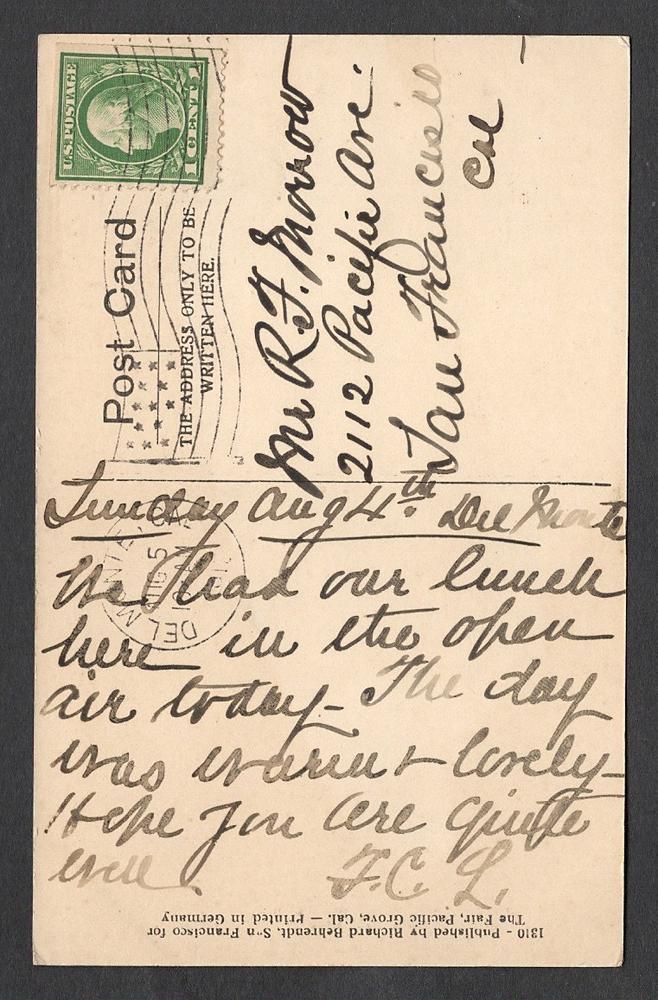 U.S.POSTAGE
1 CENT 1
Post Card
THE ADDRESS ONLY TO BE
WRITTEN HERE.
Mr R. F. Morrow
2112 Pacific Ave.
San Francisco
Cal
Sunday Aug 4th. Del Monte
We had our lunch
here in the open
air today - The day
was warm + lovely -
Hope you are quite
well. F. C. L.
DEL MONTE
AUG 5
1310 - Published by Richard Behrendt, San Francisco for
The Fair, Pacific Grove, Cal. — Printed in Germany